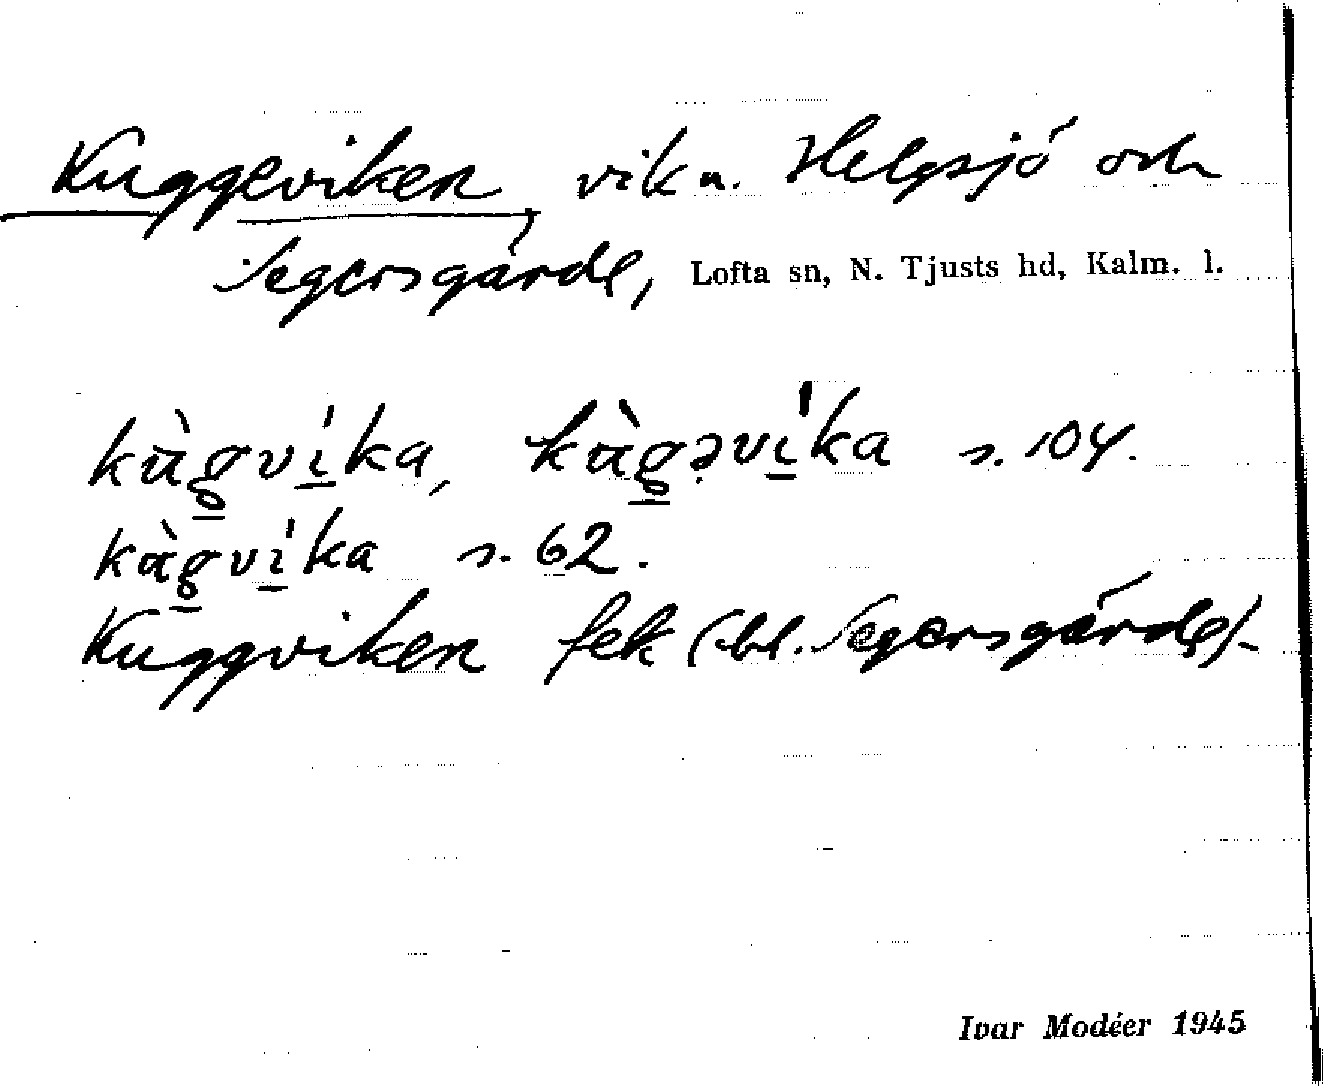 Kuggeviken, vik n. Helgsjö och
Segersgärde, Lofta sn, N. Tjusts hd, Kalm. l.
kùg̲vı̲́ka, kùg̲əvı̲́ka s. 104.
kùg̲vı̲́ka s. 62.
Kuggviken fek (bl. Segersgärde).
Ivar Modéer 1945